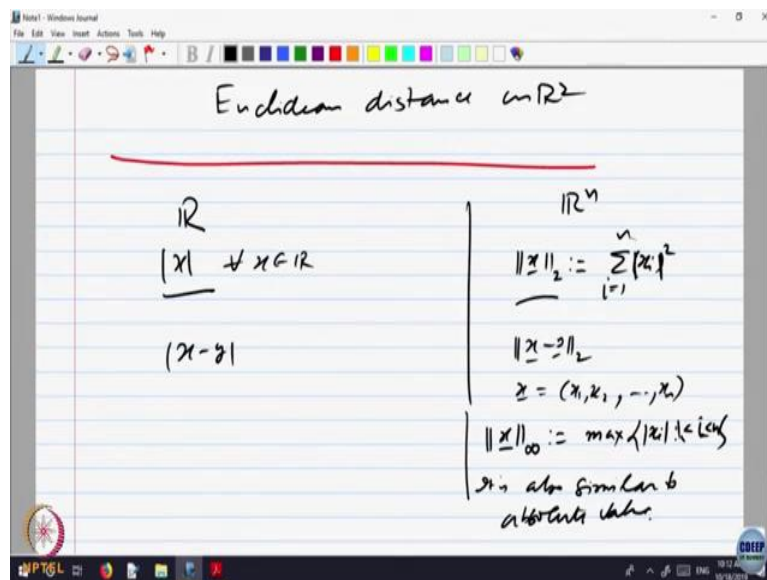 Note1 - Windows Journal
File Edit View Insert Actions Tools Help
B I
Euclidean distance on ℝ²
ℝ
|x| ∀ x ∈ ℝ
|x-y|
ℝⁿ
||x||₂ := Σⁿᵢ₌₁ |xᵢ|²
||x - y||₂
x = (x₁, x₂, ..., xₙ)
||x||∞ := max{|xᵢ| : 1≤i≤n}
It is also similar to
absolute value.
NPTEL
CDEEP
ENG
10:12 AM
10/18/2018